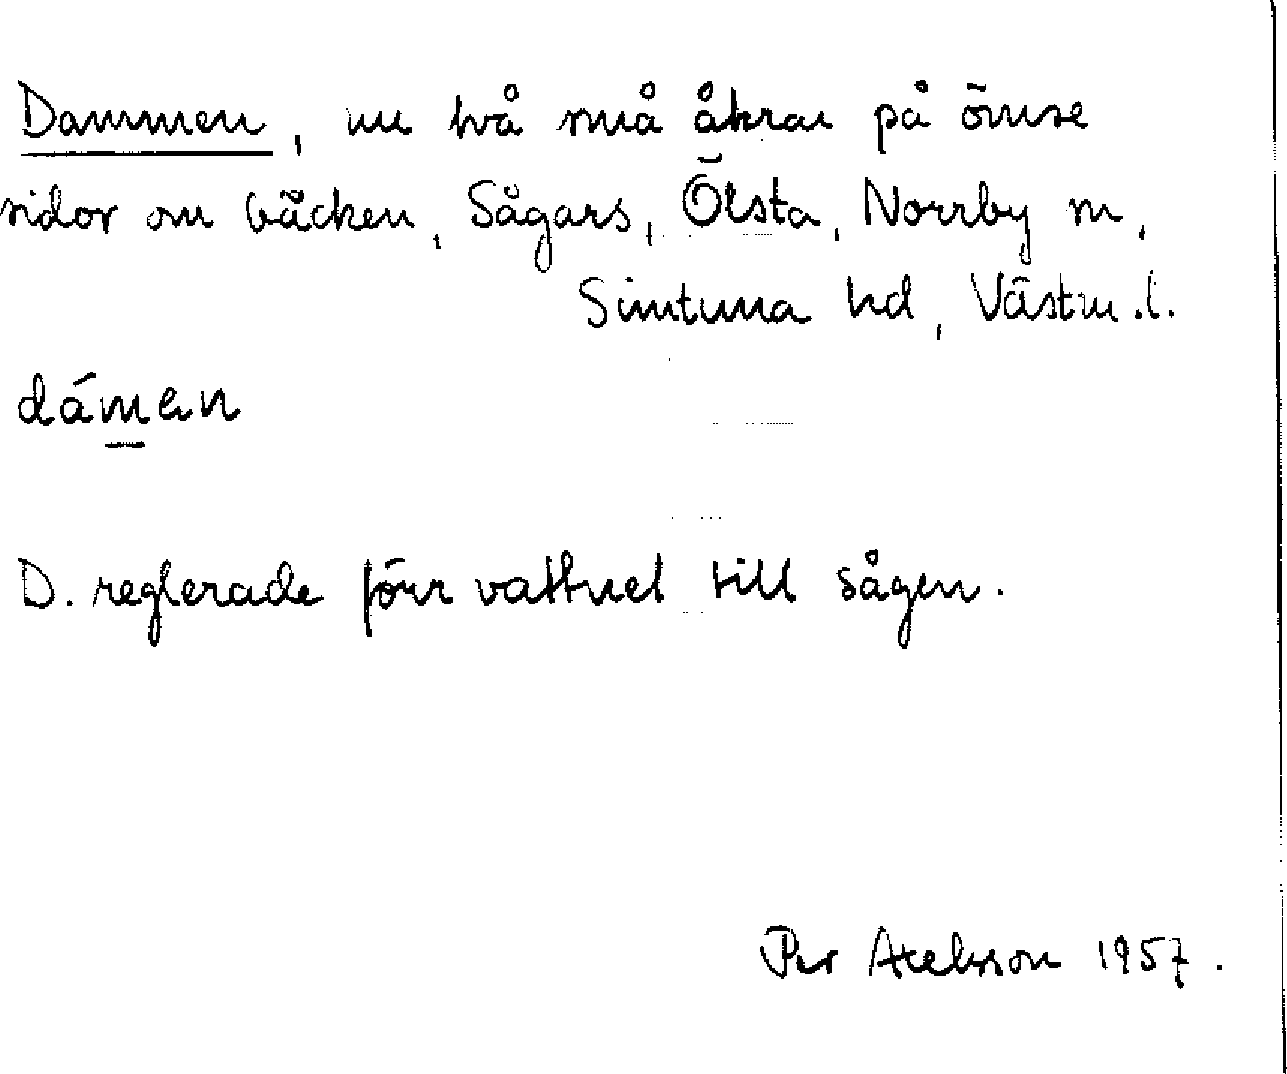 Dammen, nu två små åkrar på ömse
sidor om bäcken, Sågars, Ölsta, Norrby sn,
Simtuna hd, Västm.l.
dámen
D. reglerade förr vattnet till sågen.
Per Axelsson 1957.